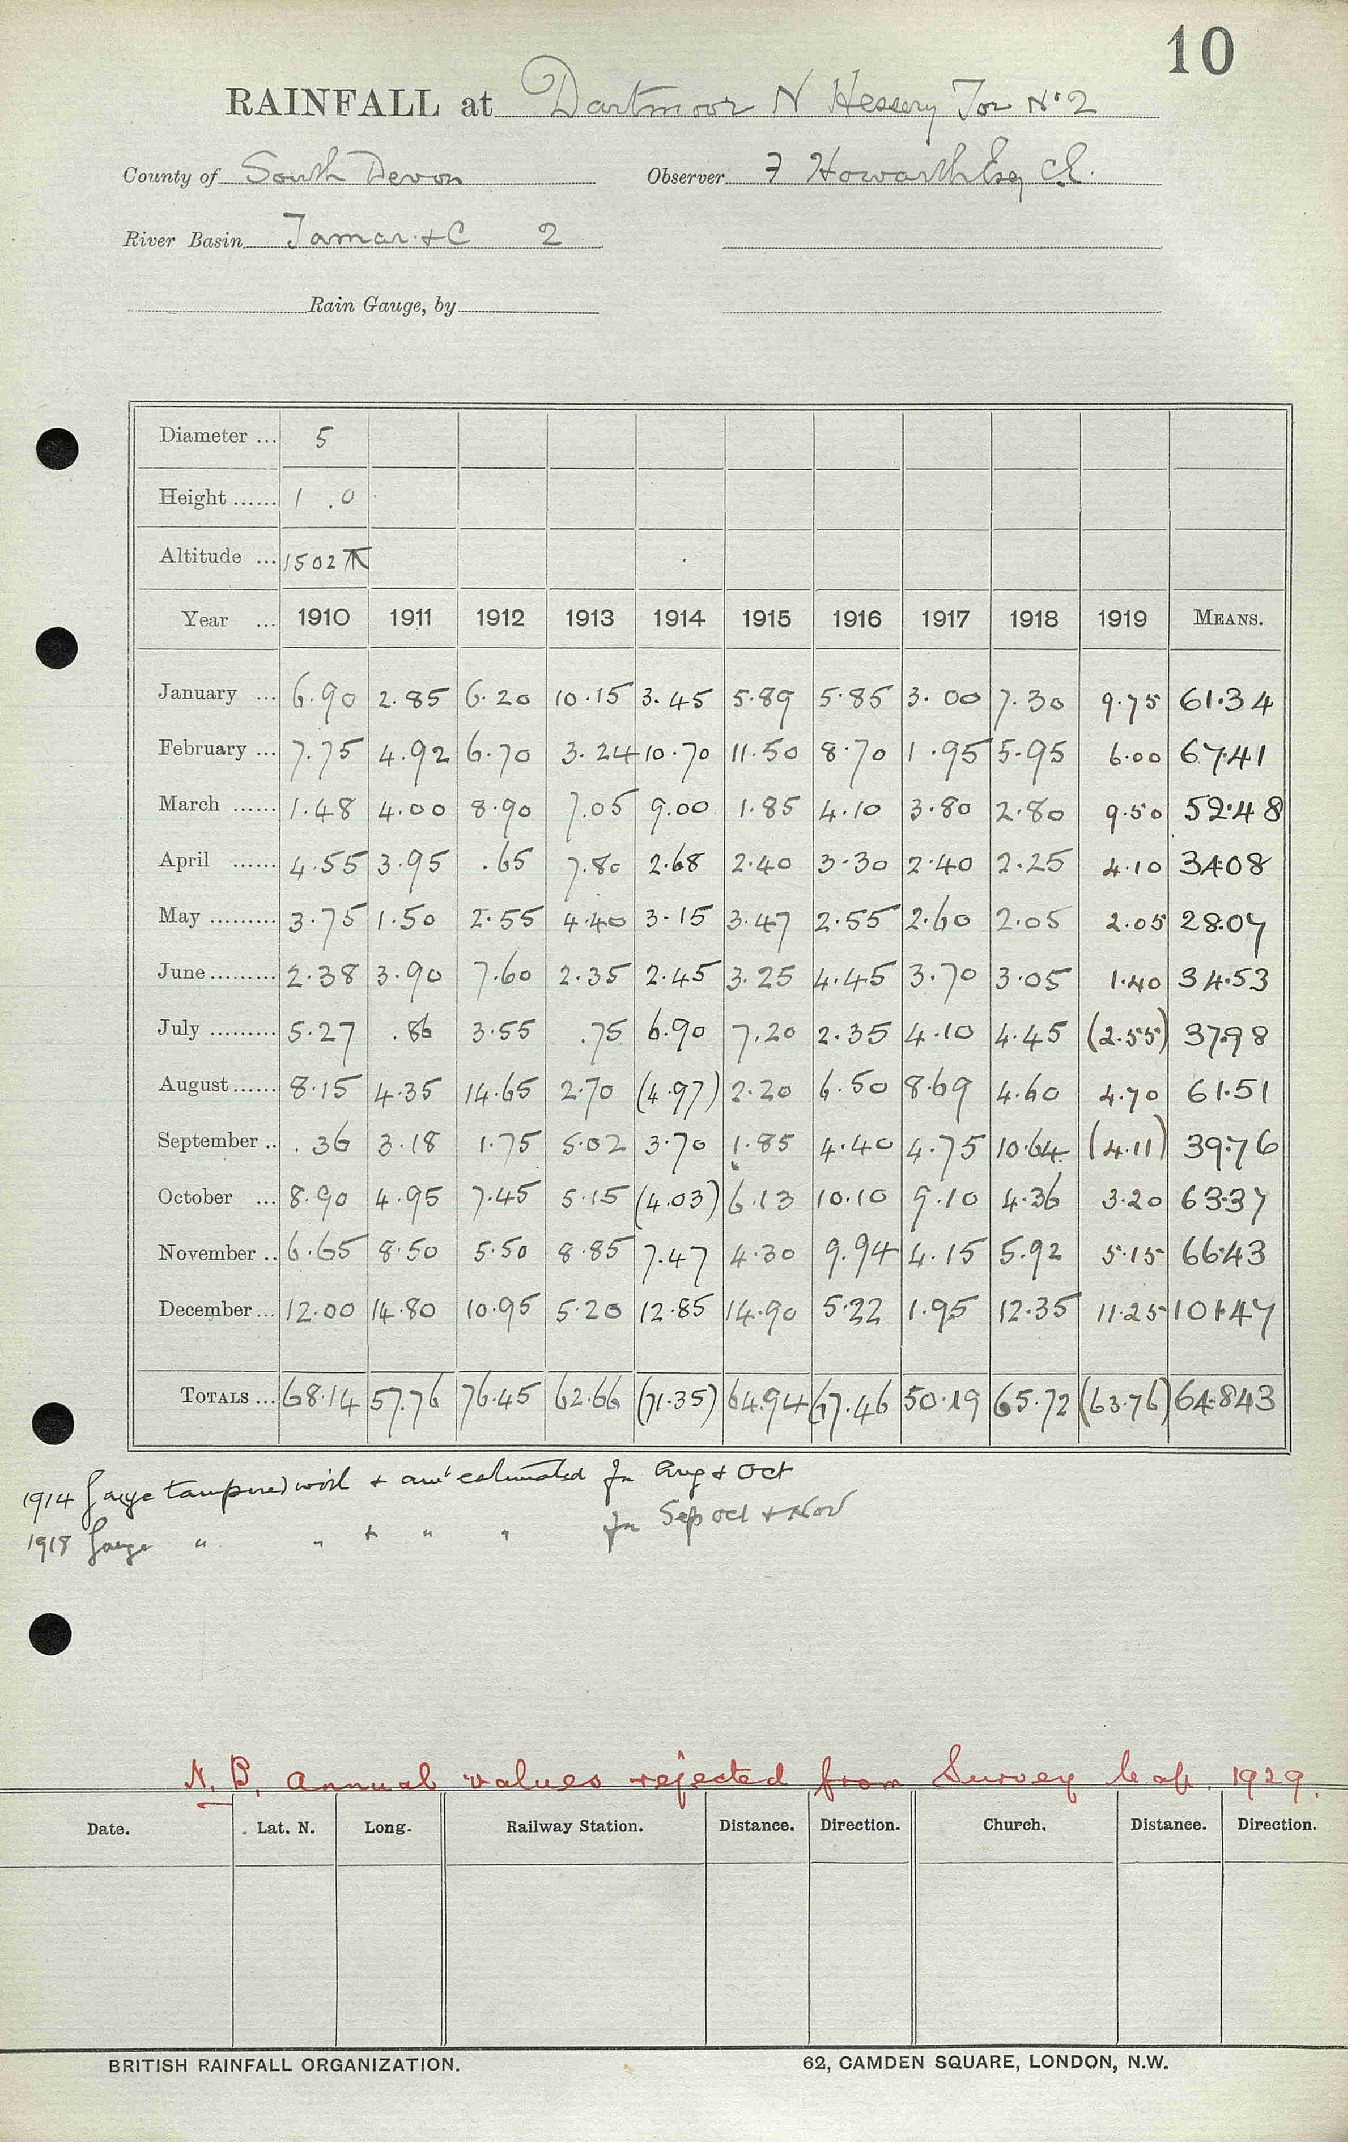 10
RAINFALL at Dartmoor N Hessary Tor No 2
County of South Devon Observer F Howarth Esq C.E.
River Basin Tamar &C 2
Rain Gauge, by
Diameter ... 5
Height ...... 1 .0
Altitude ... 1502
Year ... 1910 1911 1912 1913 1914 1915 1916 1917 1918 1919 MEANS.
January ... 6.90 2.85 6.20 10.15 3.45 5.89 5.85 3.00 7.30 9.75 61.34
February ... 7.75 4.92 6.70 3.24 10.70 11.50 8.70 1.95 5.95 6.00 67.41
March ...... 1.48 4.00 8.90 7.05 9.00 1.85 4.10 3.80 2.80 9.50 52.48
April ...... 4.55 3.95 .65 7.80 2.68 2.40 3.30 2.40 2.25 4.10 34.08
May ......... 3.75 1.50 2.55 4.40 3.15 3.47 2.55 2.60 2.05 2.05 28.07
June ......... 2.38 3.90 7.60 2.35 2.45 3.25 4.45 3.70 3.05 1.40 34.53
July ......... 5.27 .86 3.55 .75 6.90 7.20 2.35 4.10 4.45 (2.55) 37.98
August ...... 8.15 4.35 14.65 2.70 (4.97) 2.20 6.50 8.69 4.60 4.70 61.51
September .. .36 3.18 1.75 5.02 3.70 1.85 4.40 4.75 10.64 (4.11) 39.76
October ... 8.90 4.95 7.45 5.15 (4.03) 6.13 10.10 9.10 4.36 3.20 63.37
November .. 6.65 8.50 5.50 8.85 7.47 4.30 9.94 4.15 5.92 5.15 66.43
December ... 12.00 14.80 10.95 5.20 12.85 14.90 5.22 1.95 12.35 11.25 101.47
TOTALS ... 68.14 57.76 76.45 62.66 (71.35) 64.94 67.46 50.19 65.72 (63.76) 64.843
1914 Gauge tampered with & amt estimated for Aug & Oct
1918 Gauge " " & " " for Sep Oct & Nov
N.B. Annual values rejected from Survey 1929.
Date. Lat. N. Long. Railway Station. Distance. Direction. Church. Distance. Direction.
BRITISH RAINFALL ORGANIZATION. 62, CAMDEN SQUARE, LONDON, N.W.